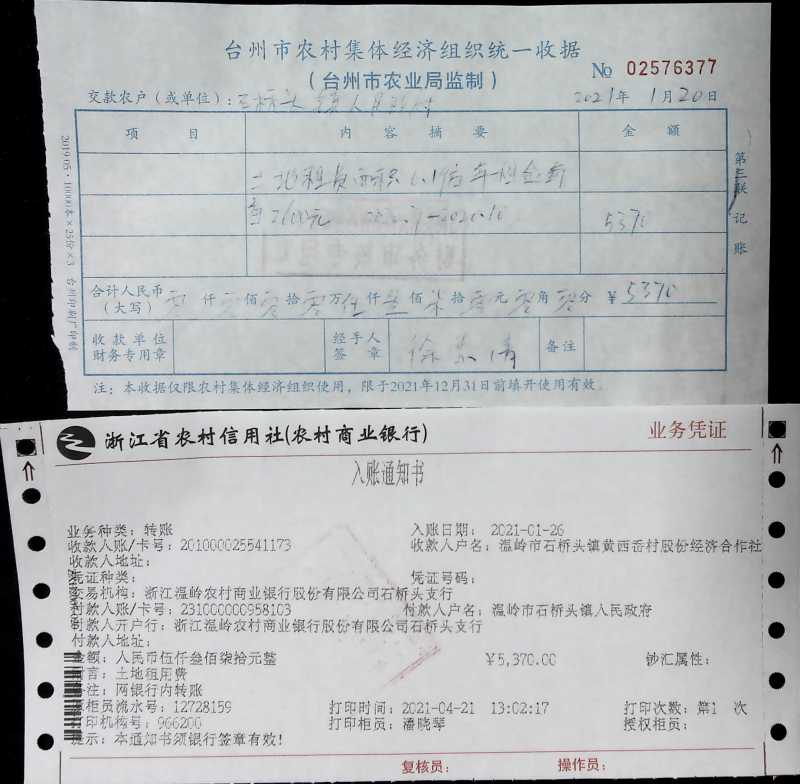 台州市农村集体经济组织统一收据
(台州市农业局监制)
№ 02576377
交款农户(或单位):石桥头镇人民政府
2021年 1月20日
项 目 内 容 摘 要 金 额
面积6.1亩
5370
合计人民币(大写) 零仟零佰零拾零万伍仟叁佰柒拾零元零角零分 ¥5370
收款单位财务专用章
经手人签章
备注
注:本收据仅限农村集体经济组织使用,限于2021年12月31日前填开使用有效。
第三联 记账
2019.05·10000本×25份×3 台州印刷厂印制
浙江省农村信用社(农村商业银行)
业务凭证
入账通知书
业务种类:转账 入账日期: 2021-01-26
收款人账/卡号:201000025541173 收款人户名:温岭市石桥头镇黄西岙村股份经济合作社
收款人地址:
凭证种类: 凭证号码:
交易机构:浙江温岭农村商业银行股份有限公司石桥头支行
付款人账/卡号:231000000958103 付款人户名:温岭市石桥头镇人民政府
付款人开户行:浙江温岭农村商业银行股份有限公司石桥头支行
付款人地址:
金额:人民币伍仟叁佰柒拾元整 ¥5,370.00 钞汇属性:
附言:土地租用费
备注:网银行内转账
原柜员流水号:12728159 打印时间:2021-04-21 13:02:17 打印次数:第1 次
打印机构号:966200 打印柜员:潘晓琴 授权柜员:
提示:本通知书须银行签章有效!
复核员: 操作员: